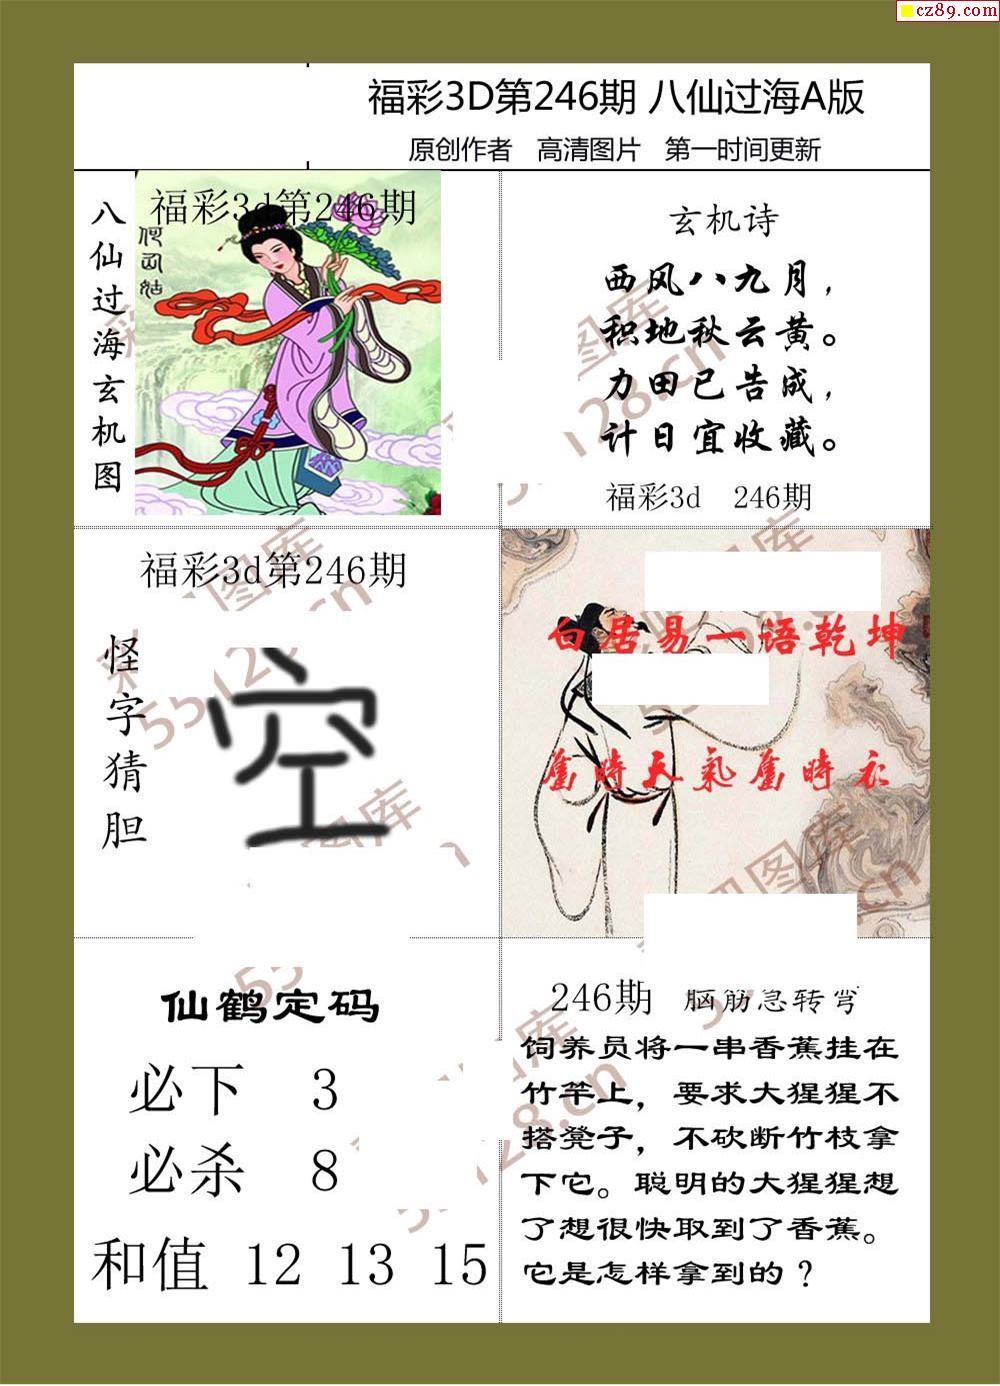 cz89.com
福彩3D第246期 八仙过海A版
原创作者 高清图片 第一时间更新
八仙过海玄机图
福彩3d第246期
何仙姑
玄机诗
西风八九月，
积地秋云黄。
力田已告成，
计日宜收藏。
福彩3d 246期
福彩3d第246期
怪字猜胆
空
白居易一语乾坤
舊時天氣舊時衣
仙鹤定码
必下 3
必杀 8
和值 12 13 15
246期 脑筋急转弯
饲养员将一串香蕉挂在
竹竿上，要求大猩猩不
搭凳子，不砍断竹枝拿
下它。聪明的大猩猩想
了想很快取到了香蕉。
它是怎样拿到的？